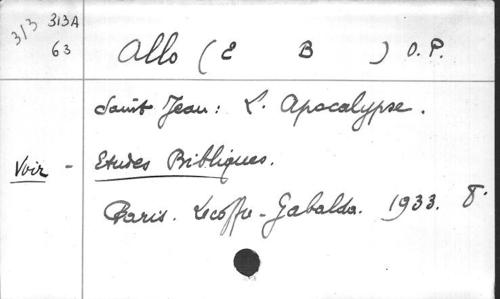 313 313A
63
Allo (E B ) O.P.
Saint Jean: L'Apocalypse.
Voir - Etudes Bibliques.
Paris. Lecoffre-Gabalda. 1933. 8°